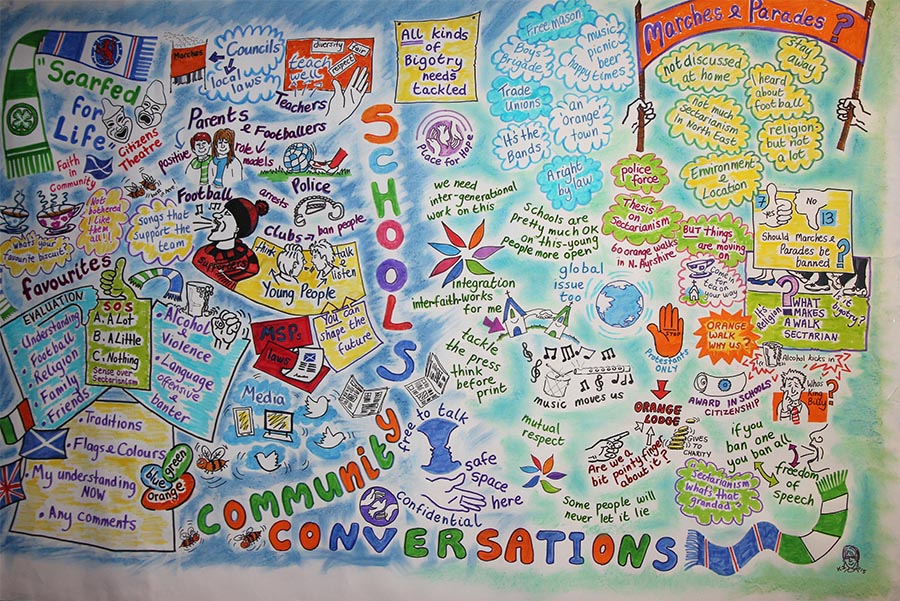 "Scarfed
for
Life"
Citizens
Theatre
Faith
in
Community
Marches
Councils
local
laws
diversity
fair
teach
well
respect
Teachers
Parents
& Footballers
positive
role
models
Football
arrests
Police
Clubs → ban people
What's your
favourite biscuit?
Not
bothered
I like
them
all!
songs that
support the
team
Think
Talk
&
listen
Young People
favourites
EVALUATION
• Understanding
• Football
• Religion
• Family
• Friends
SOS
A. A Lot
B. A Little
C. Nothing
Sense over
Sectarianism
• Alcohol
&
violence
• Language
offensive
&
banter
MSPs
laws
You can
shape the
future
Media
• Traditions
• Flags & Colours
• My understanding
NOW
• Any comments
green
blue
orange
SCHOOLS
Community
CONVERSATIONS
All kinds
of
Bigotry
needs
tackled
Place for Hope
we need
inter-generational
work on this
integration
inter-faith works
for me
tackle
the press
think
before
print
free to talk
safe
space
here
Confidential
Free mason
Boys'
Brigade
music
picnic
beer
happy times
Trade
Unions
an
'orange'
town
It's the
Bands
A right
by law
Schools are
pretty much OK
on this-young
people more open
global
issue
too
music moves us
mutual
respect
Are we a
bit pointy finger
about it?
some people will
never let it lie
Marches & Parades?
not discussed
at home
stay
away
heard
about
football
not much
sectarianism
in North East
religion
but not
a lot
Environment
&
Location
police
force
Thesis
on
Sectarianism
60 orange walks
in N. Ayrshire
But things
are moving
on
come in
for tea on
your way
7
Yes
No
13
Should Marches
&
Parades be
banned?
It's
Religion
WHAT
MAKES A
WALK
SECTARIAN
is it
bigotry?
STOP
PROTESTANTS
ONLY
ORANGE
WALK
WHY US?
ORANGE
LODGE
GIVES
TO
CHARITY
AWARD IN SCHOOLS
CITIZENSHIP
Alcohol kicks in
Who's
King
Billy?
if you
ban one
you ban
all
freedom
of
speech
"sectarianism
what's that
grandad?